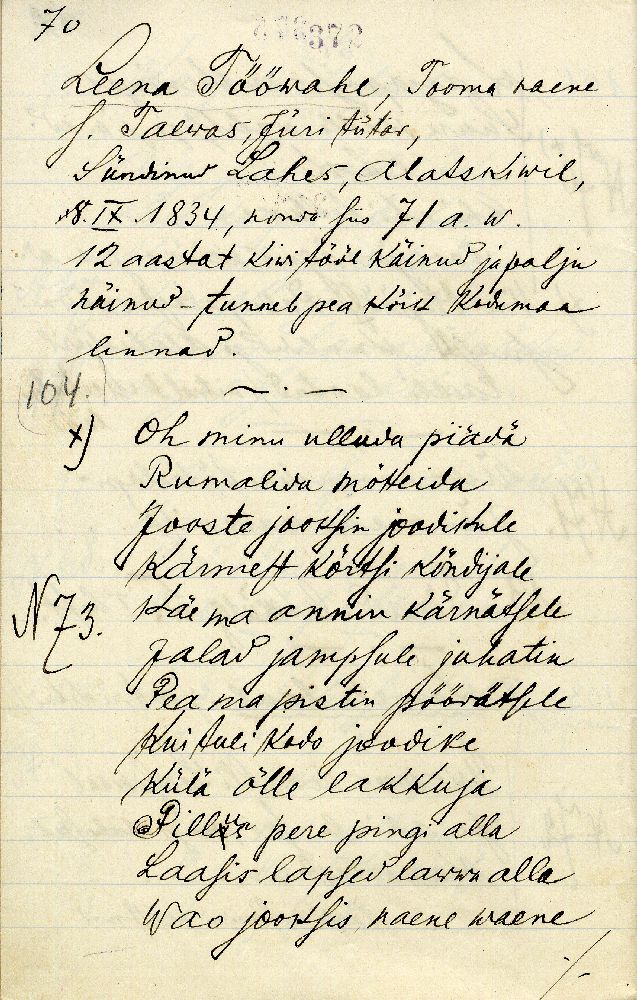 70
372
Leena Tööwahe, Tooma naene
s. Taewas, Jüri tütar,
Sündinud Lahes, Alatskiwil,
8. IX 1834, nonda siis 71 a. w.
12 aastat kiwi tööl käinud ja palju
näinud - tunneb pea kõik kodumaa
linnad.
(104.)
x) Oh minu ulluda piädä
Rumalida mõtteida
Jooste jooksin joodikule
Kärmest kõrtsi kõndijale
N 73. Käe ma annin kärnätsele
Jalad jampsule juhatin
Pea ma pistin pöörätsele
Kui tuli kodo joodike
Külä õlle lakkuja
Pilläs pere pingi alla
Laasis lapsed lawwa alla
Wao jooksis naene waene
./.